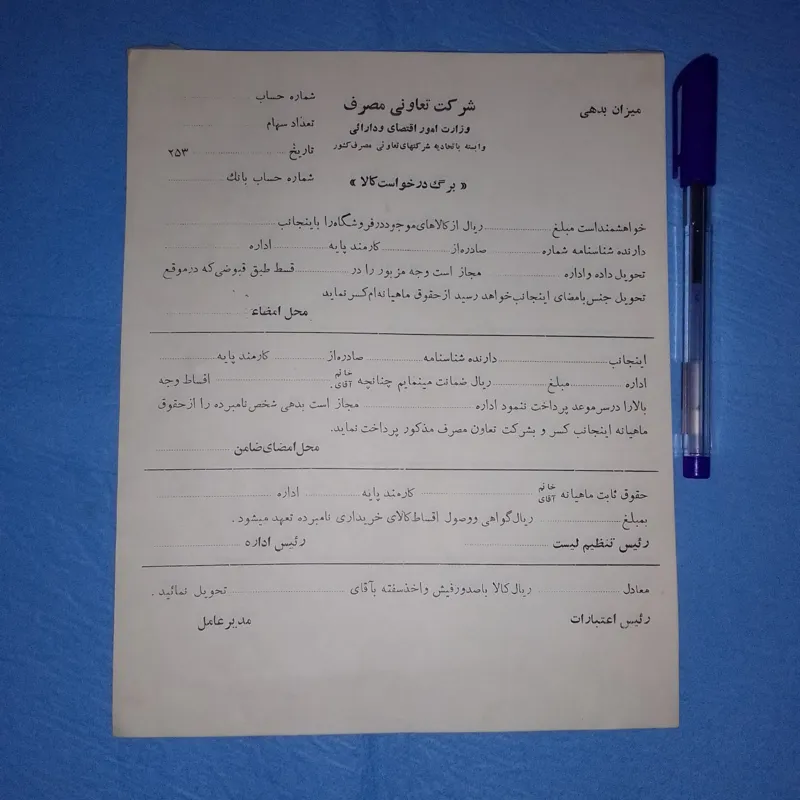 میزان بدهی
شرکت تعاونی مصرف
وزارت امور اقتصادی ودارائی
وابسته باتحادیه شرکتهای تعاونی مصرف کشور
« برگ درخواست کالا »
شماره حساب
تعداد سهام
تاریخ ۲۵۳
شماره حساب بانک
خواهشمنداست مبلغ ریال از کالاهای موجود در فروشگاه را باینجانب
دارنده شناسنامه شماره صادره از کارمند پایه اداره
تحویل داده واداره مجاز است وجه مزبور را در قسط طبق قبوضی که در موقع
تحویل جنس بامضای اینجانب خواهد رسید از حقوق ماهیانه ام کسر نماید
محل امضاء
اینجانب دارنده شناسنامه صادره از کارمند پایه
اداره مبلغ ریال ضمانت مینمایم چنانچه خانم آقای اقساط وجه
بالا را در سر موعد پرداخت ننمود اداره مجاز است بدهی شخص نامبرده را از حقوق
ماهیانه اینجانب کسر و بشرکت تعاون مصرف مذکور پرداخت نماید.
محل امضای ضامن
حقوق ثابت ماهیانه خانم آقای کارمند پایه اداره
بمبلغ ریال گواهی ووصول اقساط کالای خریداری نامبرده تعهد میشود.
رئیس تنظیم لیست رئیس اداره
معادل ریال کالا باصدور فیش واخذ سفته بآقای تحویل نمائید.
رئیس اعتبارات مدیر عامل